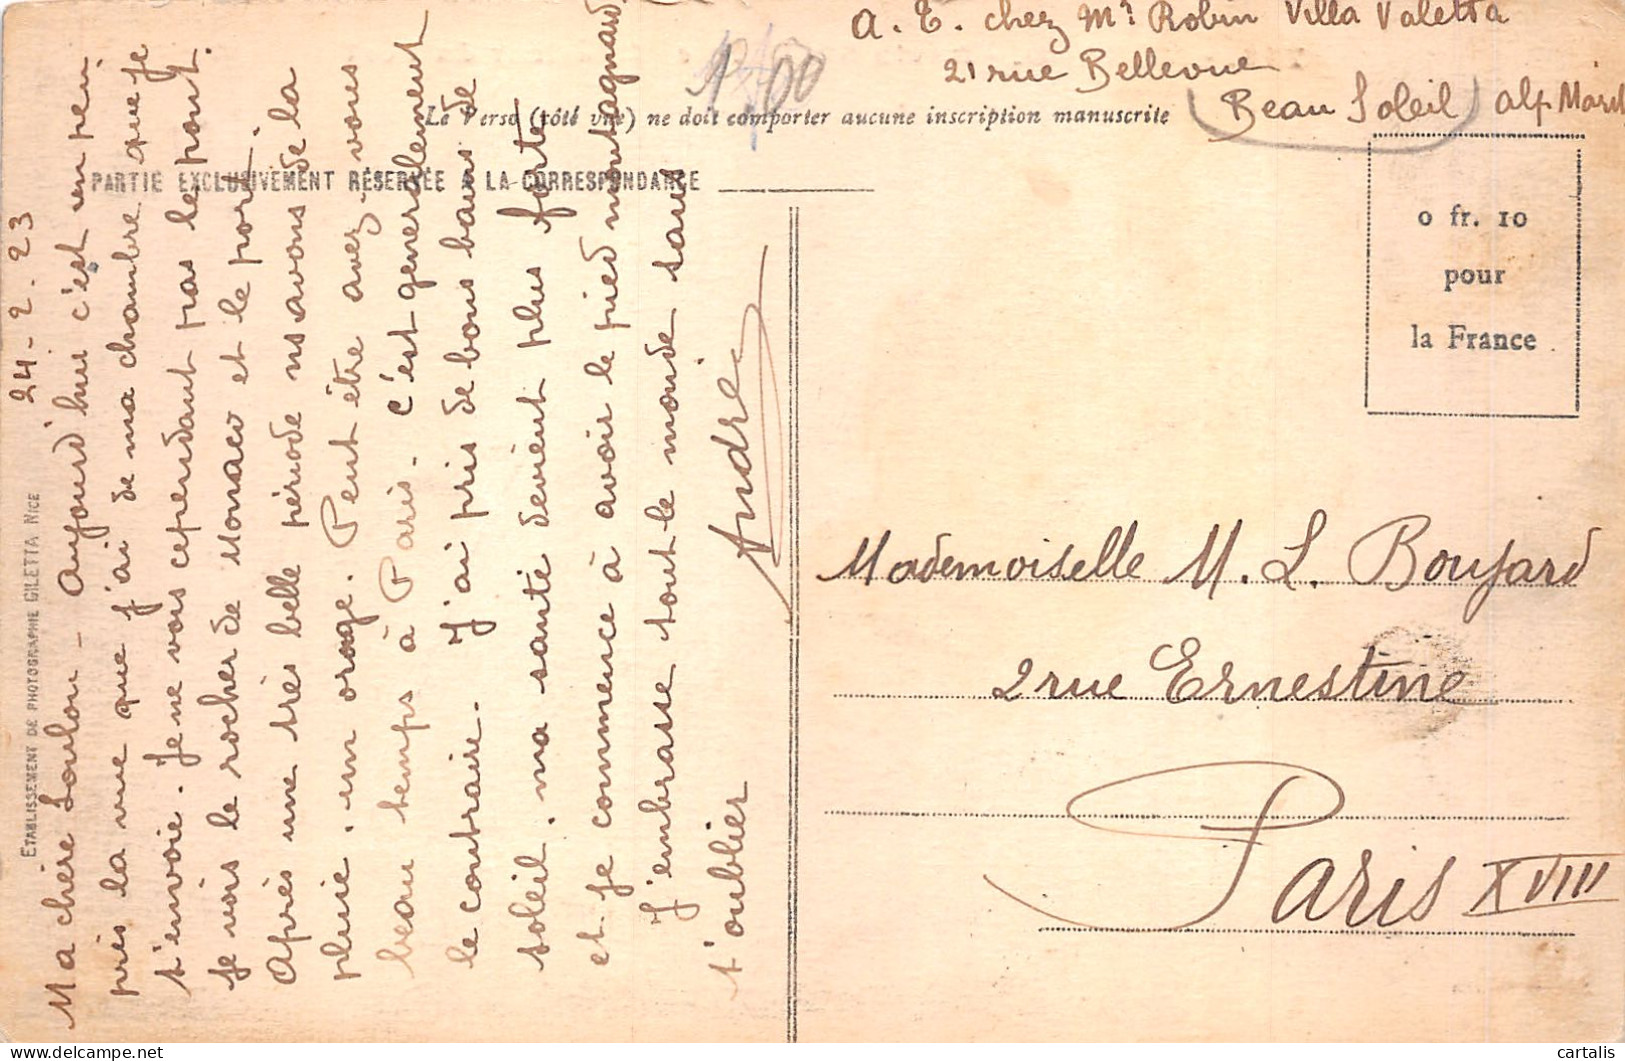 A. E. chez Mr Robin Villa Valetta
21 rue Bellevue
(Beau Soleil) alp Marit
1,00
Le Verso (côté vue) ne doit comporter aucune inscription manuscrite
PARTIE EXCLUSIVEMENT RÉSERVÉE A LA CORRESPONDANCE
24-2-23
Ma chère Loulou - Aujourd'hui c'est un peu
pris la vue que j'ai de ma chambre que je
t'envoie. Je ne vois cependant pas le pont.
je vois le rocher de Monaco et le port.
Après une très belle période ns avons de la
pluie, un orage. Peut être avez-vous
beau temps à Paris. c'est generalement
le contraire. J'ai pris de bons bains de
soleil, ma santé devient plus forte
et je commence à avoir le pied montagnard
J'embrasse tout le monde sans
t'oublier
André
ETABLISSEMENT DE PHOTOGRAPHIE GILETTA NICE
0 fr. 10
pour
la France
Mademoiselle M. L. Boujard
2 rue Ernestine
Paris XVIII
cartalis